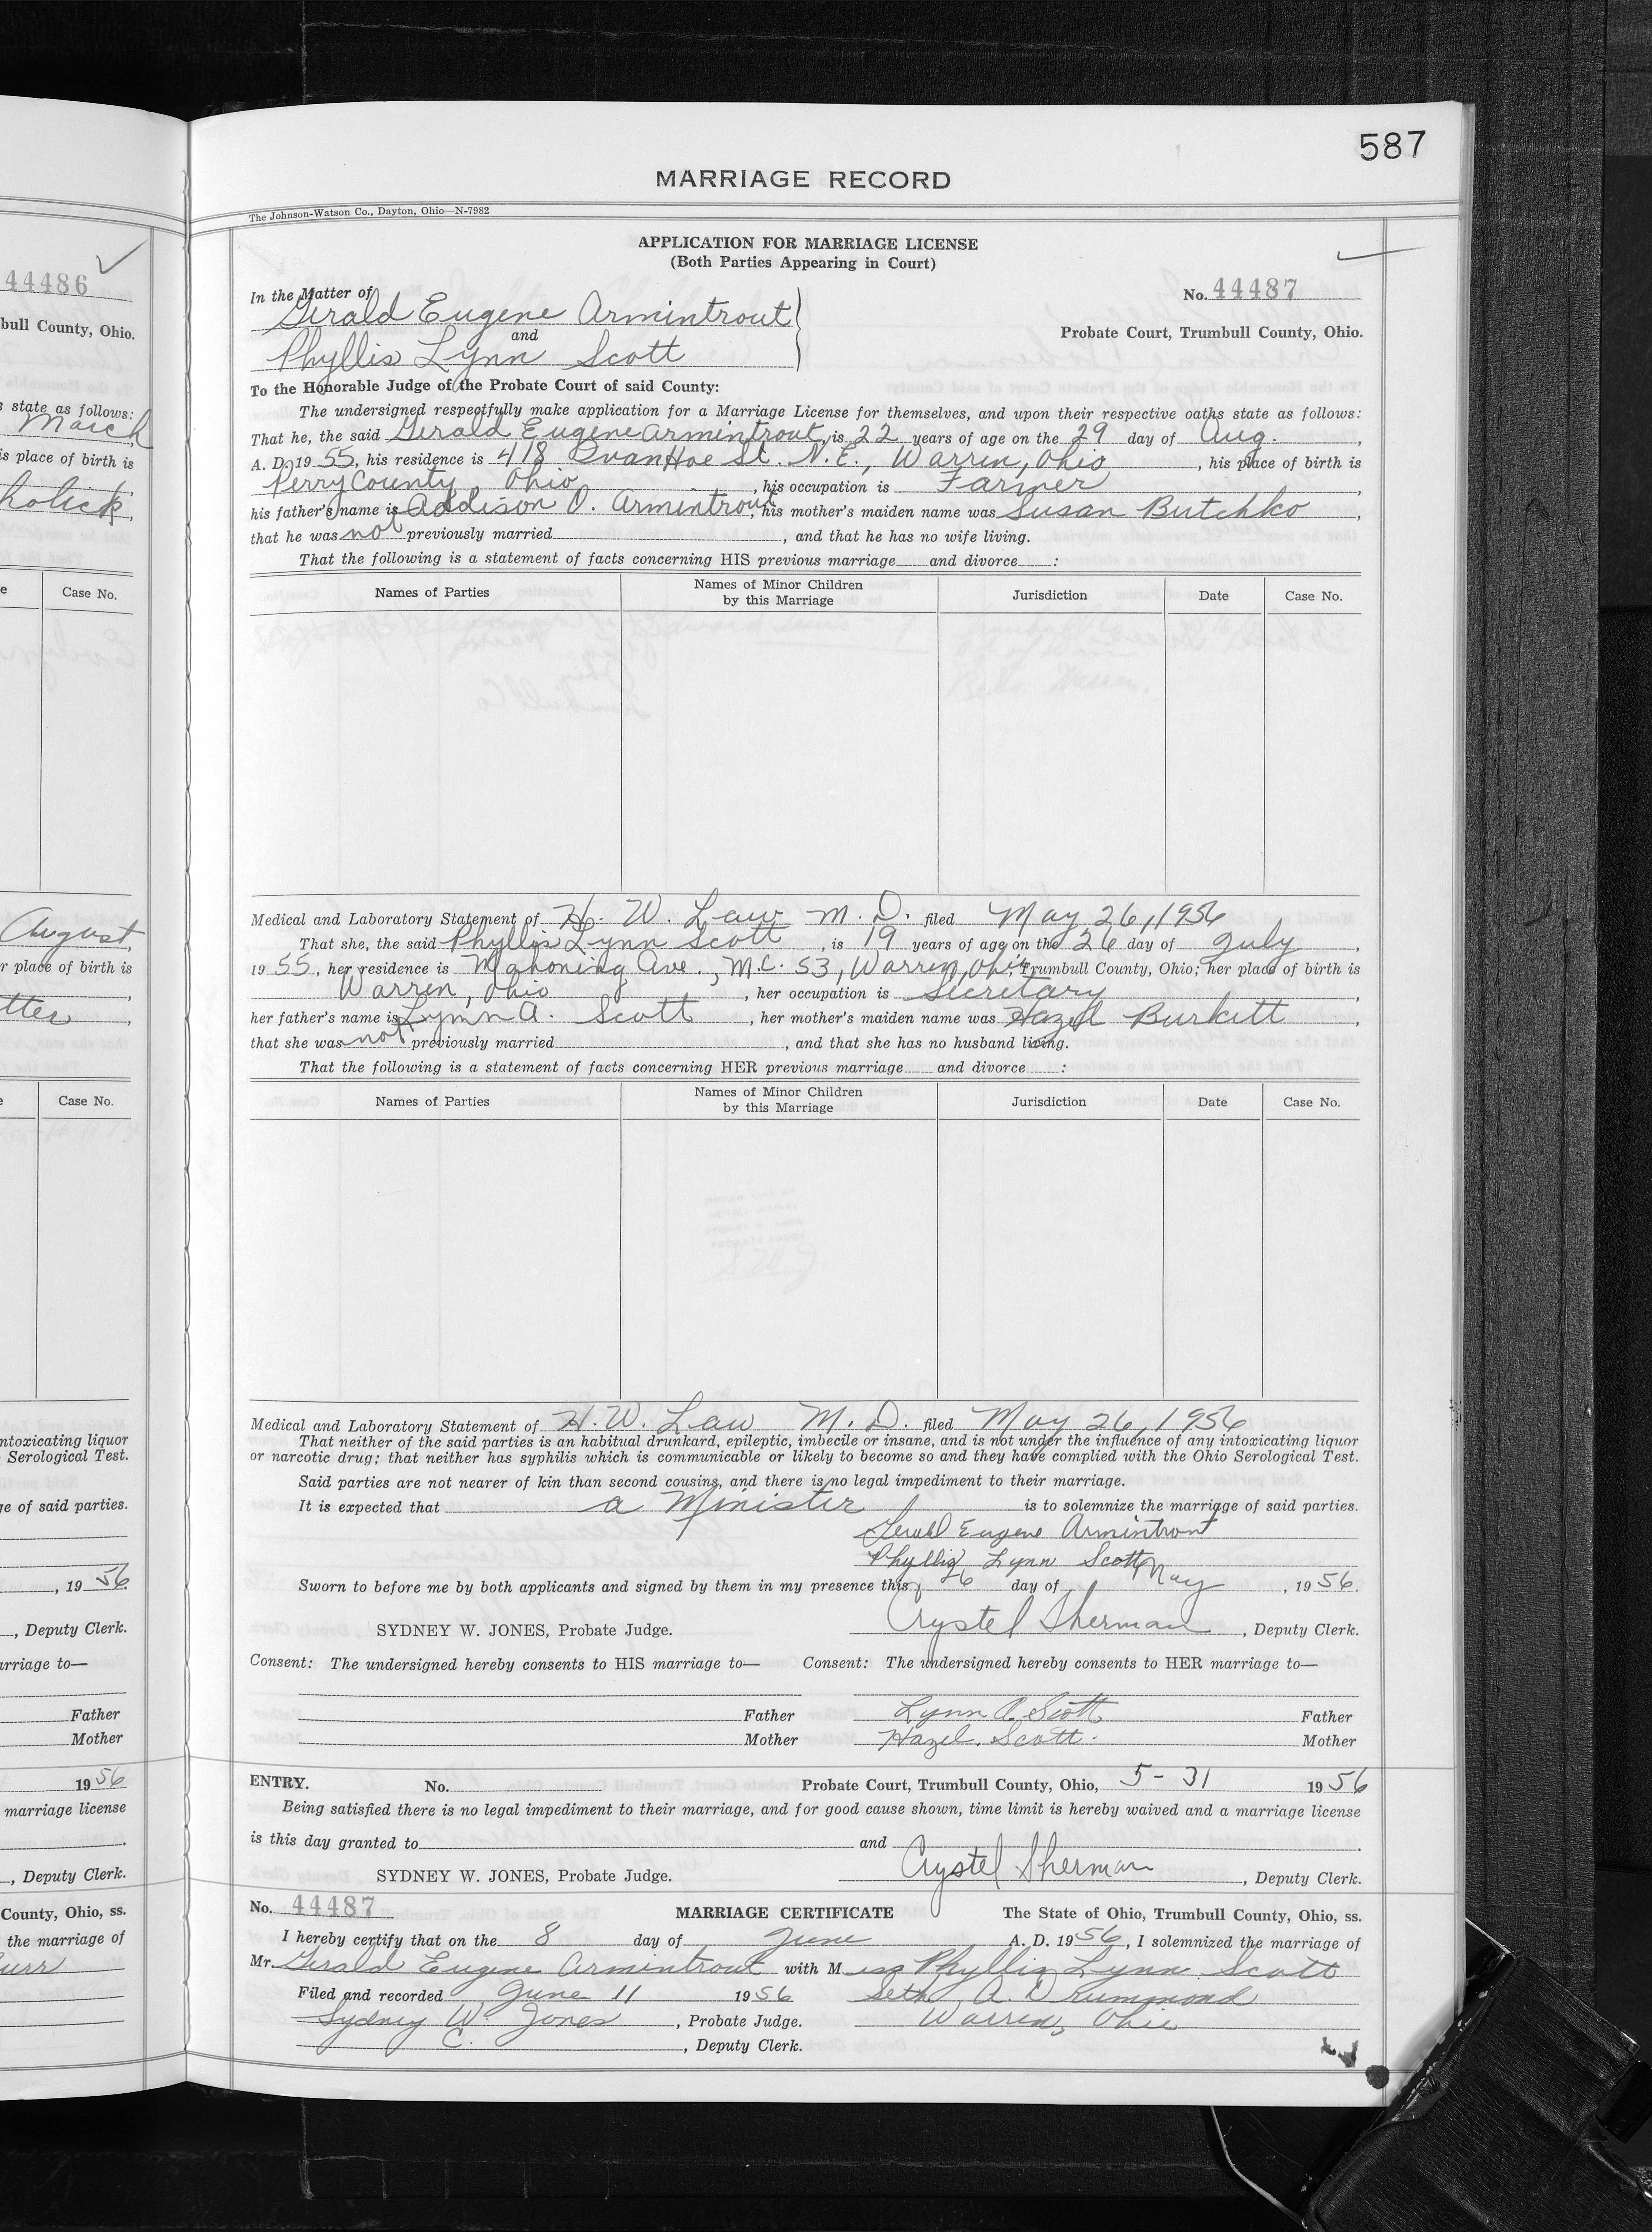 587
MARRIAGE RECORD
The Johnson-Watson Co., Dayton, Ohio—N-7982
APPLICATION FOR MARRIAGE LICENSE
(Both Parties Appearing in Court)
In the Matter of
No. 44487
Gerald Eugene Armintrout
and
Probate Court, Trumbull County, Ohio.
Phyllis Lynn Scott
To the Honorable Judge of the Probate Court of said County:
The undersigned respectfully make application for a Marriage License for themselves, and upon their respective oaths state as follows:
That he, the said Gerald Eugene Armintrout, is 22 years of age on the 29 day of Aug.,
A. D. 19 55, his residence is 418 St. N.E., Warren, Ohio, his place of birth is
Perry County Ohio, his occupation is Farmer,
his father's name is Addison O. Armintrout, his mother's maiden name was Susan Butchko,
that he was not previously married, and that he has no wife living.
That the following is a statement of facts concerning HIS previous marriage and divorce :
Names of Parties
Names of Minor Children
by this Marriage
Jurisdiction
Date
Case No.
Medical and Laboratory Statement of H. W. Law M. D. filed May 26, 1956
That she, the said Phyllis Lynn Scott, is 19 years of age on the 26 day of July,
19 55, her residence is Mahoning Ave., M.C. 53, Warren, Ohio, Trumbull County, Ohio; her place of birth is
Warren, Ohio, her occupation is Secretary,
her father's name is Lynn A. Scott, her mother's maiden name was Hazel Burkett,
that she was not previously married, and that she has no husband living.
That the following is a statement of facts concerning HER previous marriage and divorce :
Names of Parties
Names of Minor Children
by this Marriage
Jurisdiction
Date
Case No.
Medical and Laboratory Statement of H. W. Law M. D. filed May 26, 1956
That neither of the said parties is an habitual drunkard, epileptic, imbecile or insane, and is not under the influence of any intoxicating liquor
or narcotic drug; that neither has syphilis which is communicable or likely to become so and they have complied with the Ohio Serological Test.
Said parties are not nearer of kin than second cousins, and there is no legal impediment to their marriage.
It is expected that a Minister is to solemnize the marriage of said parties.
Gerald Eugene Armintrout
Phyllis Lynn Scott
Sworn to before me by both applicants and signed by them in my presence this 26 day of May, 19 56.
SYDNEY W. JONES, Probate Judge. Crystel Sherman, Deputy Clerk.
Consent: The undersigned hereby consents to HIS marriage to— Consent: The undersigned hereby consents to HER marriage to—
Father Lynn A Scott Father
Mother Hazel Scott. Mother
ENTRY. No. Probate Court, Trumbull County, Ohio, 5-31 19 56
Being satisfied there is no legal impediment to their marriage, and for good cause shown, time limit is hereby waived and a marriage license
is this day granted to and .
SYDNEY W. JONES, Probate Judge. Crystel Sherman, Deputy Clerk.
No. 44487 MARRIAGE CERTIFICATE The State of Ohio, Trumbull County, Ohio, ss.
I hereby certify that on the 8 day of June A. D. 19 56, I solemnized the marriage of
Mr. Gerald Eugene Armintrout with Miss Phyllis Lynn Scott
Filed and recorded June 11 19 56 Seth A. Drummond
Sydney W. Jones, Probate Judge. Warren, Ohio
C. , Deputy Clerk.
44486
bull County, Ohio.
s state as follows:
March
is place of birth is
holick,
e
Case No.
August
r place of birth is
tter
e
Case No.
ntoxicating liquor
Serological Test.
ge of said parties.
, 19 56
, Deputy Clerk.
arriage to—
Father
Mother
19 56
marriage license
, Deputy Clerk.
County, Ohio, ss.
the marriage of
urr